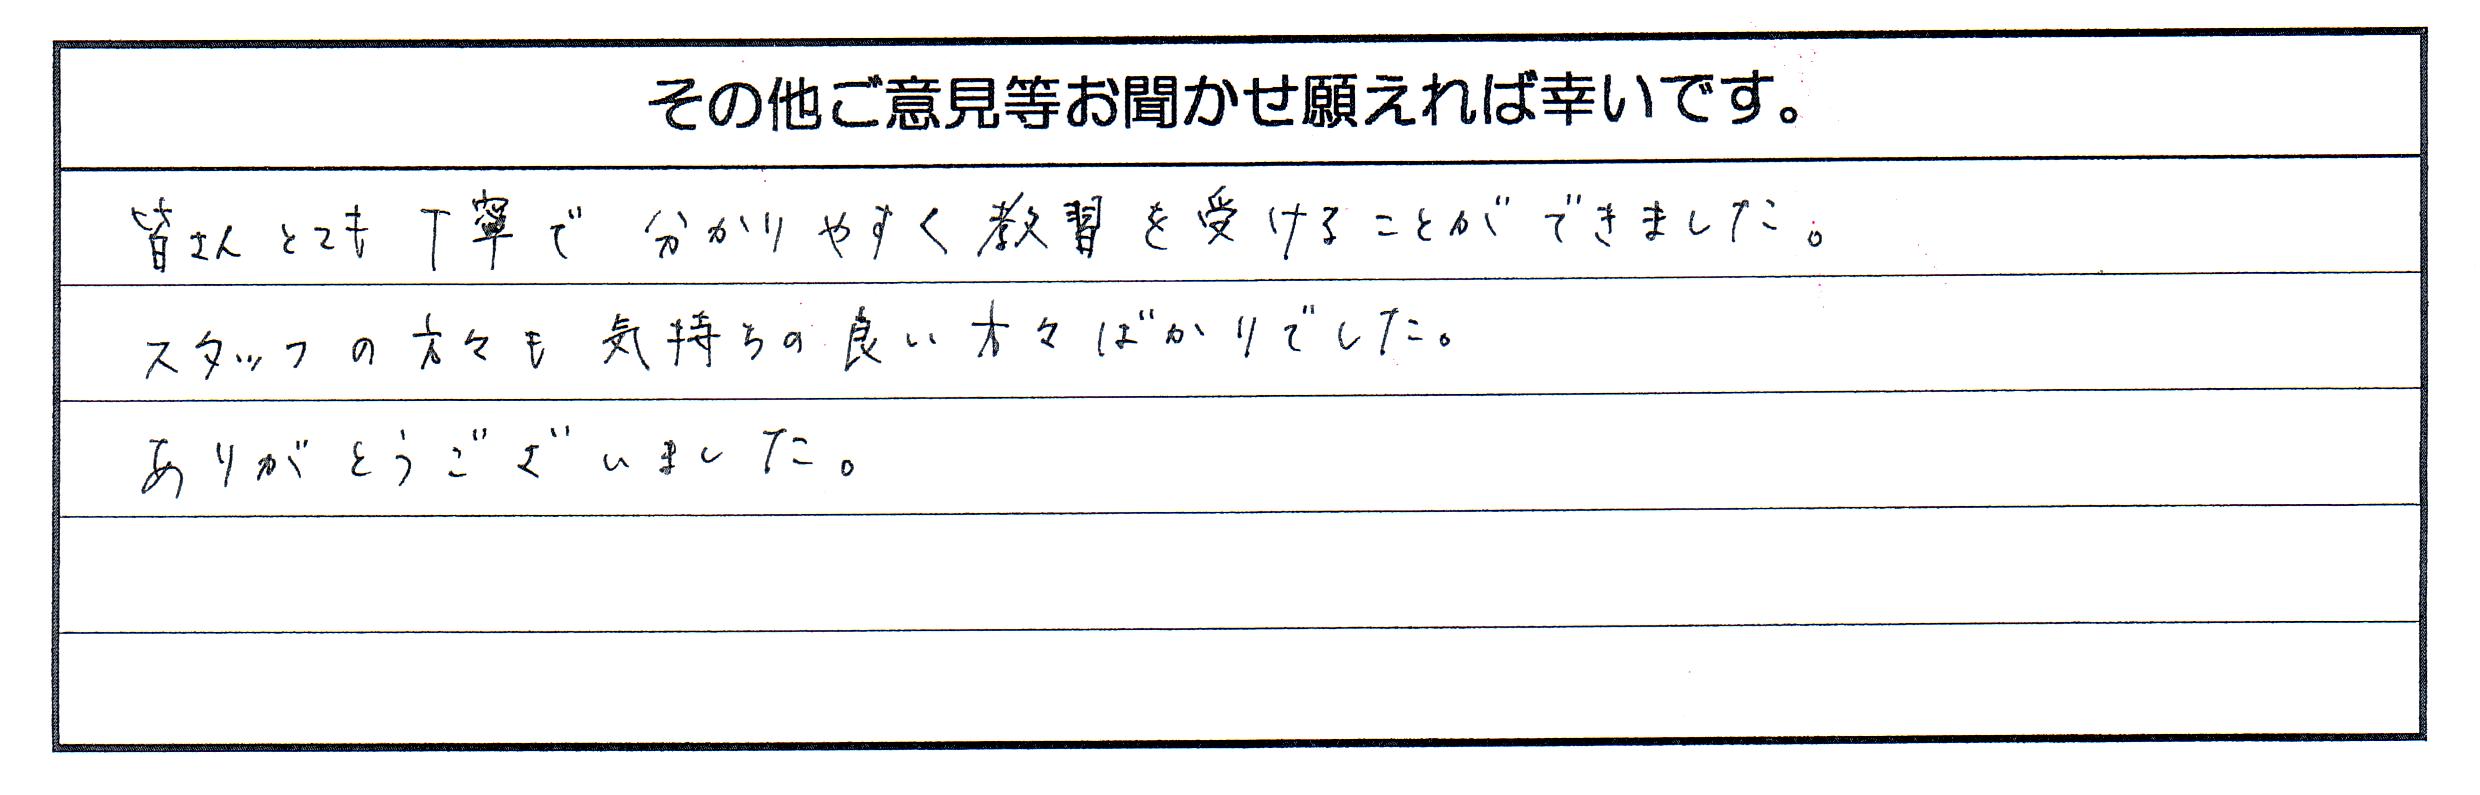 その他ご意見等お聞かせ願えれば幸いです。
皆さんとても丁寧で 分かりやすく教習を受けることができました。
スタッフの方々も 気持ちの良い方々ばかりでした。
ありがとうございました。